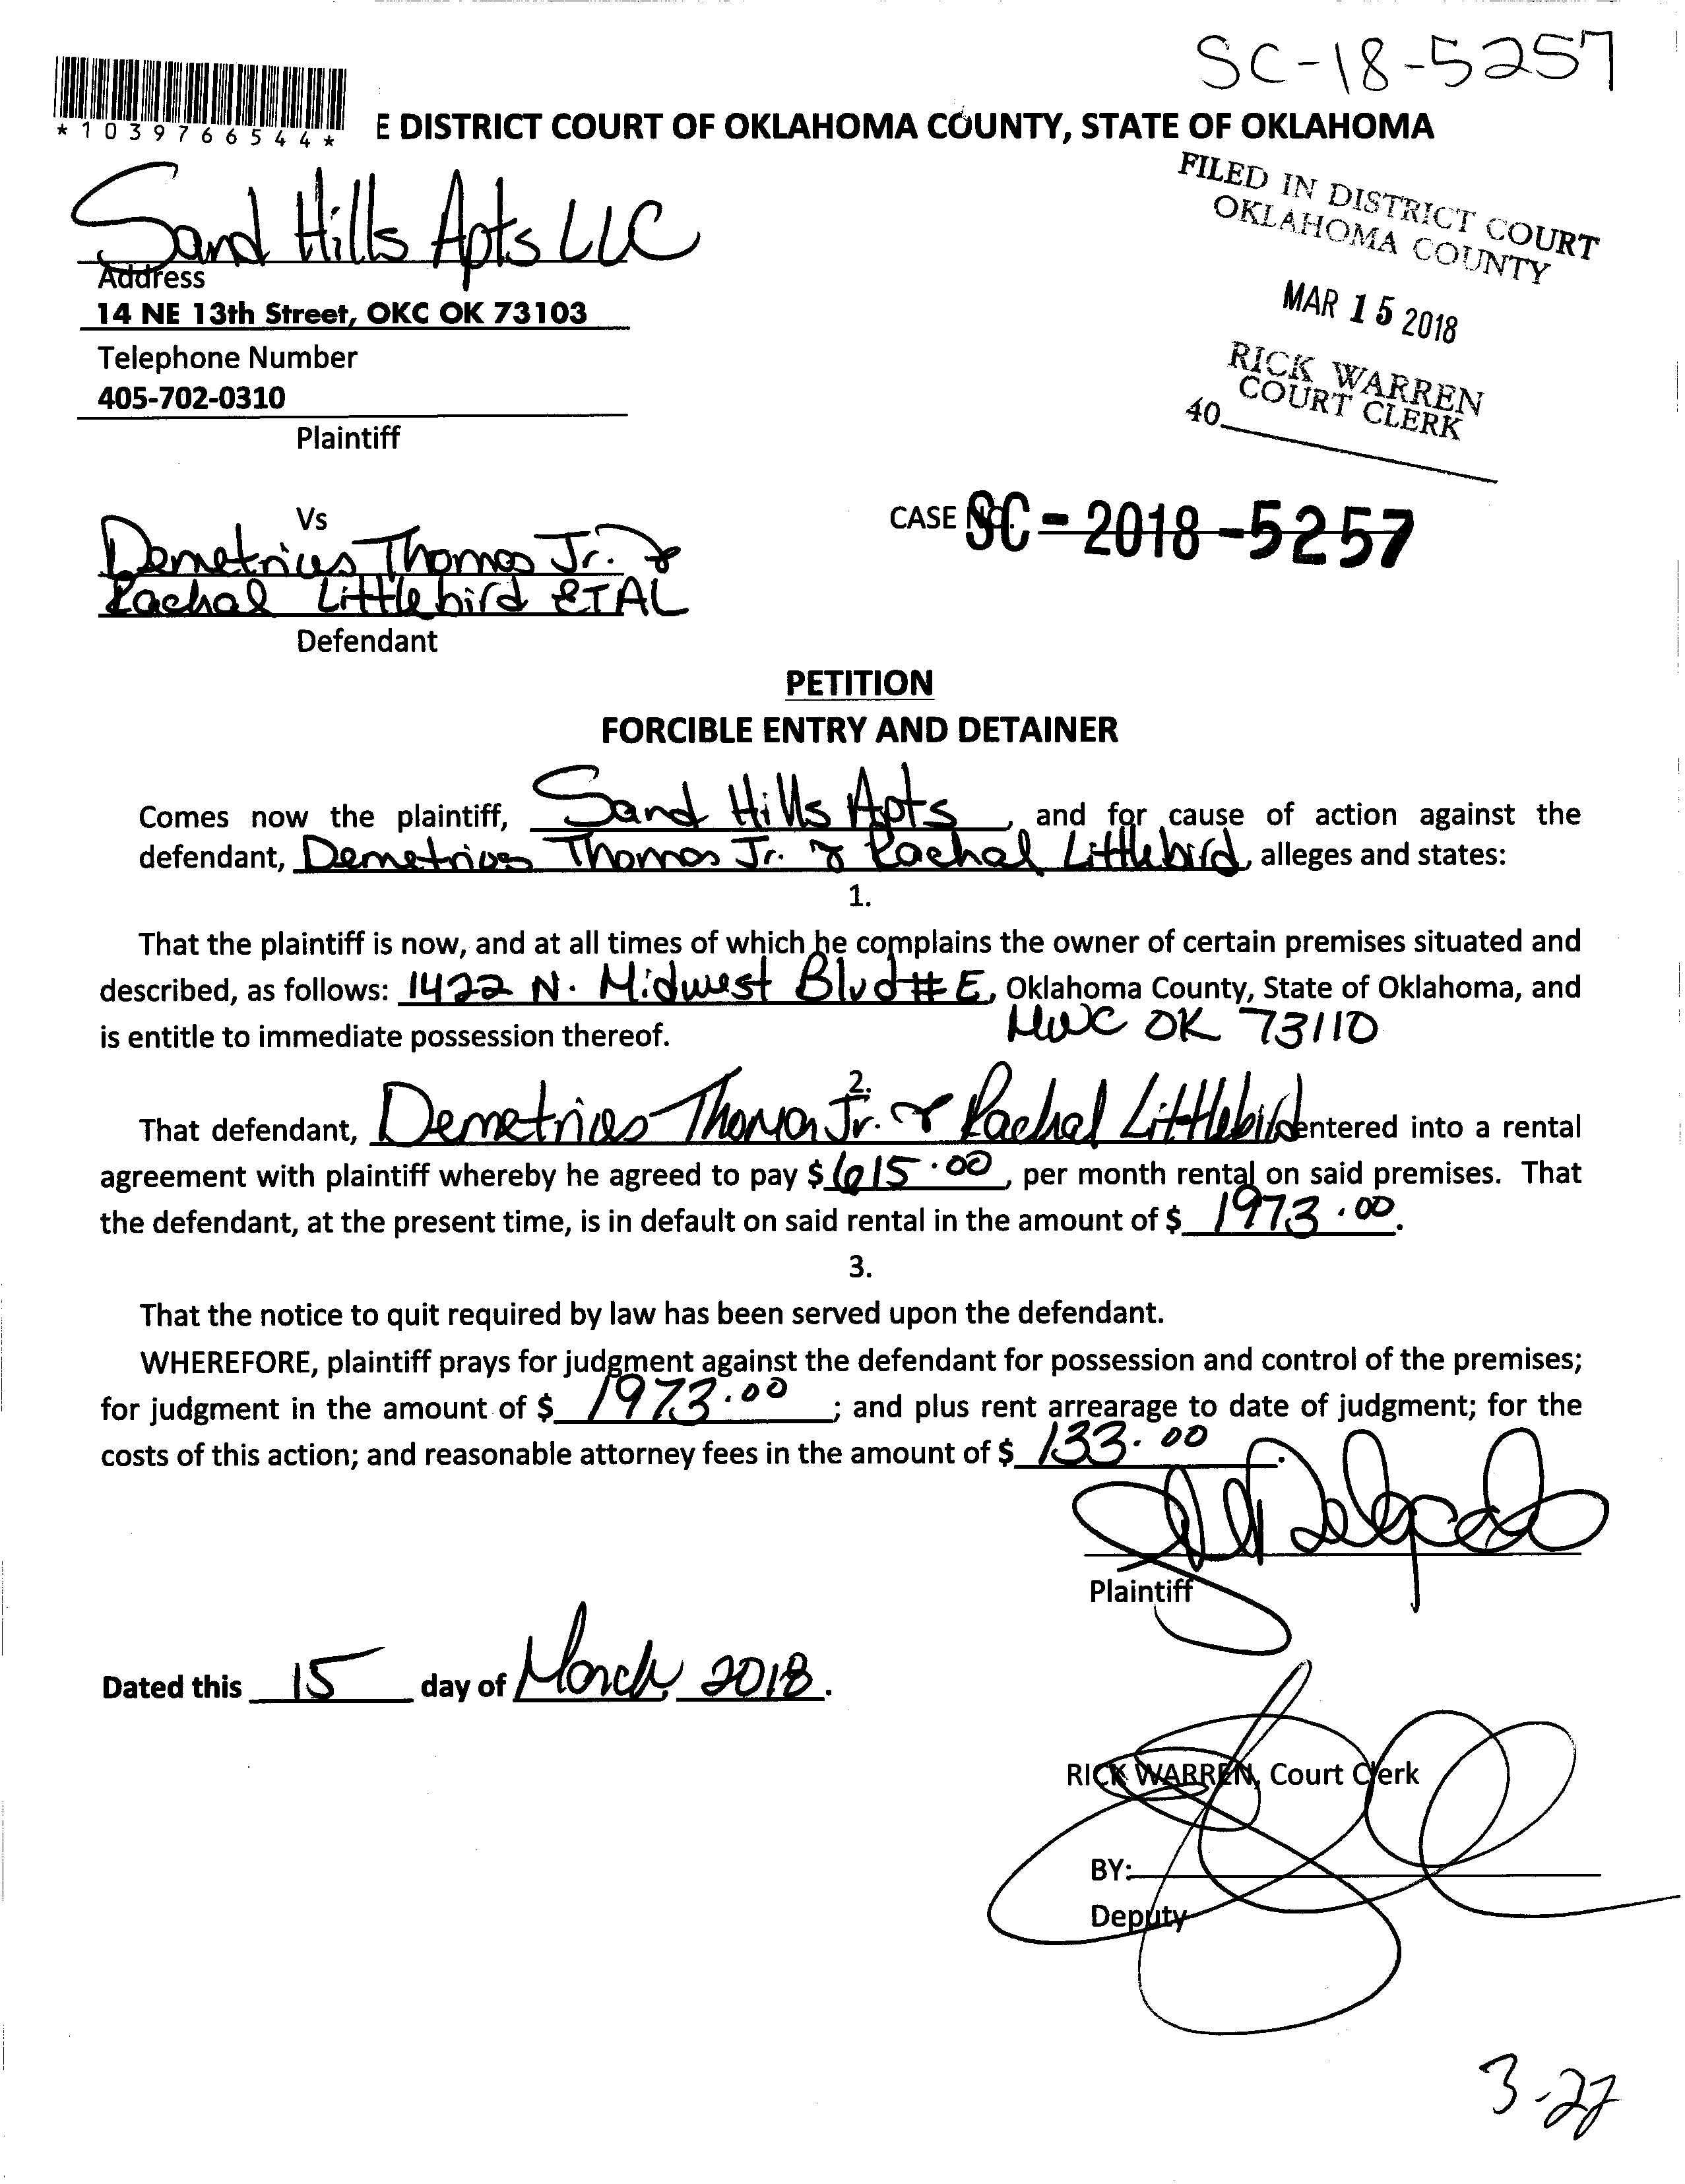 SC-18-5257
*1039766544*
E DISTRICT COURT OF OKLAHOMA COUNTY, STATE OF OKLAHOMA
Sand Hills Apts LLC
Address
14 NE 13th Street, OKC OK 73103
Telephone Number
405-702-0310
Plaintiff
FILED IN DISTRICT COURT
OKLAHOMA COUNTY
MAR 15 2018
RICK WARREN
COURT CLERK
40
Vs
CASE NO. SC-2018-5257
Demetrius Thomas Jr. &
Rachal Littlebird ETAL
Defendant
PETITION
FORCIBLE ENTRY AND DETAINER
Comes now the plaintiff, Sand Hills Apts, and for cause of action against the
defendant, Demetrius Thomas Jr. & Rachal Littlebird, alleges and states:
1.
That the plaintiff is now, and at all times of which he complains the owner of certain premises situated and
described, as follows: 1422 N. Midwest Blvd # E, Oklahoma County, State of Oklahoma, and
is entitle to immediate possession thereof. MWC OK 73110
2.
That defendant, Demetrius Thomas Jr. & Rachal Littlebird entered into a rental
agreement with plaintiff whereby he agreed to pay $ 615.00, per month rental on said premises. That
the defendant, at the present time, is in default on said rental in the amount of $ 1973.00.
3.
That the notice to quit required by law has been served upon the defendant.
WHEREFORE, plaintiff prays for judgment against the defendant for possession and control of the premises;
for judgment in the amount of $ 1973.00; and plus rent arrearage to date of judgment; for the
costs of this action; and reasonable attorney fees in the amount of $ 133.00.
Delgado
Plaintiff
Dated this 15 day of March, 2018.
RICK WARREN, Court Clerk
BY:
Deputy
3-27